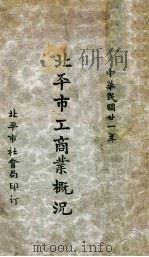 中華民國廿一年
北平市工商業概況
北平市社會局印行
www.duxiu.com